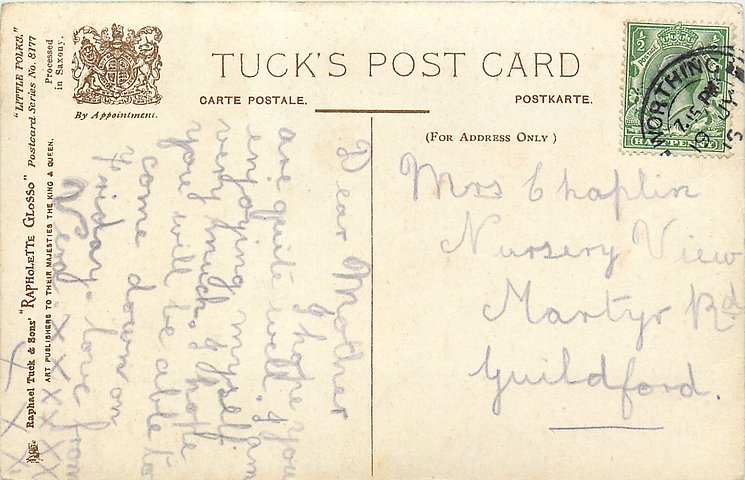 "LITTLE FOLKS."
Postcard Series No. 8177
Processed
in Saxony.
Raphael Tuck & Sons' "RAPHOLETTE GLOSSO"
ART PUBLISHERS TO THEIR MAJESTIES THE KING & QUEEN.
By Appointment.
TUCK'S POST CARD
CARTE POSTALE.
POSTKARTE.
(FOR ADDRESS ONLY)
HALFPENNY
WORTHING
7.15 PM
19 JY
Dear Mother
I hope you
are quite well. I am
enjoying myself
very much. I hope
you will be able to
come down on
Friday. love from
X X X X X X
X X X X X X
X X X
Mrs Chaplin
Nursery View
Martyr Rd
Guildford.